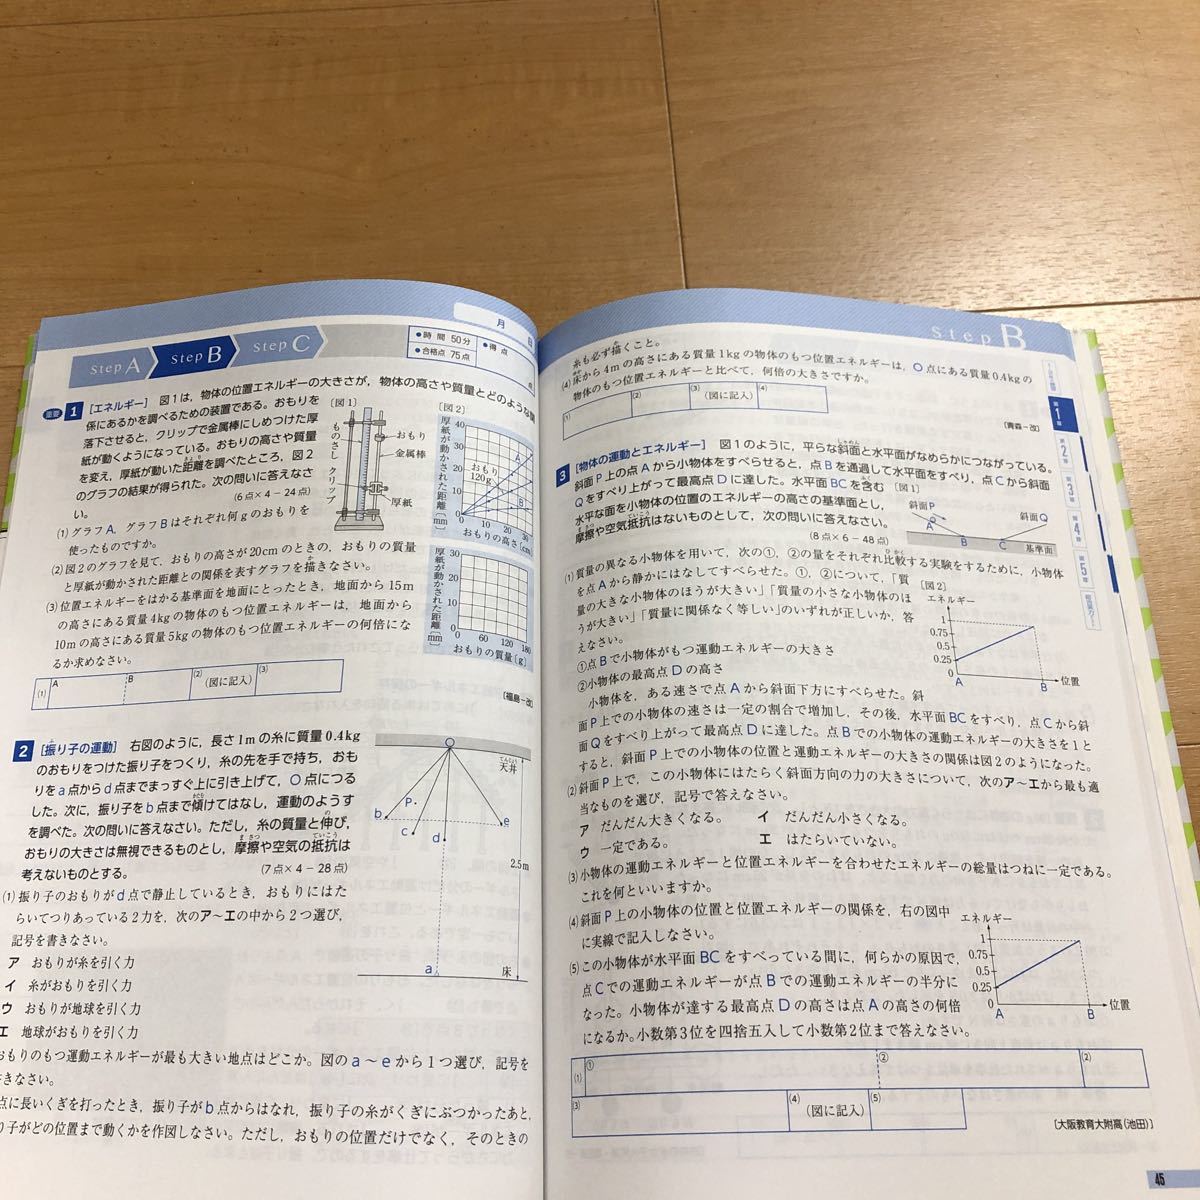 月 日
Step A Step B Step C
●時間 50分
●合格点 75点
●得点
点
重要 1 [エネルギー] 図1は，物体の位置エネルギーの大きさが，物体の高さや質量とどのような関
係にあるかを調べるための装置である。おもりを
落下させると，クリップで金属棒にしめつけた厚
紙が動くようになっている。おもりの高さや質量
を変え，厚紙が動いた距離を調べたところ，図2
のグラフの結果が得られた。次の問いに答えなさ
い。 (6点×4－24点)
(1)グラフA，グラフBはそれぞれ何gのおもりを
使ったものですか。
(2)図2のグラフを見て，おもりの高さが20cmのとき，おもりの質量
と厚紙が動かされた距離との関係を表すグラフを描きなさい。
(3)位置エネルギーをはかる基準面を地面にとったとき，地面から15m
の高さにある質量4kgの物体のもつ位置エネルギーは，地面から
10mの高さにある質量5kgの物体のもつ位置エネルギーの何倍にな
るか求めなさい。
[図1]
ものさし
おもり
金属棒
クリップ
厚紙
[図2]
厚紙が動かされた距離[mm]
40
30
20
10
0
おもり
120g
A
B
0 10 20 30
おもりの高さ[cm]
厚紙が動かされた距離[mm]
30
20
10
0
0 60 120 180
おもりの質量[g]
(1) A B (2) (図に記入) (3)
[福島－改]
2 [振り子の運動] 右図のように，長さ1mの糸に質量0.4kg
のおもりをつけた振り子をつくり，糸の先を手で持ち，おも
りをa点からd点までまっすぐ上に引き上げて，O点につる
した。次に，振り子をb点まで傾けてはなし，運動のようす
を調べた。次の問いに答えなさい。ただし，糸の質量と伸び，
おもりの大きさは無視できるものとし，摩擦や空気の抵抗は
考えないものとする。 (7点×4－28点)
(1)振り子のおもりがd点で静止しているとき，おもりにはた
らいてつりあっている2力を，次のア～エの中から2つ選び，
記号を書きなさい。
ア おもりが糸を引く力
イ 糸がおもりを引く力
ウ おもりが地球を引く力
エ 地球がおもりを引く力
おもりのもつ運動エネルギーが最も大きい地点はどこか。図のa～eから1つ選び，記号を
きなさい。
点に長いくぎを打ったとき，振り子がb点からはなれ，振り子の糸がくぎにぶつかったあと，
り子がどの位置まで動くかを作図しなさい。ただし，おもりの位置だけでなく，そのときの
O
天井
P
b
c
d
e
2.5m
a
床
Step B
糸も必ず描くこと。
(4)床から4mの高さにある質量1kgの物体のもつ位置エネルギーは，O点にある質量0.4kgの
物体のもつ位置エネルギーと比べて，何倍の大きさですか。
(1) (2) (3) (図に記入) (4)
[青森－改]
3 [物体の運動とエネルギー] 図1のように，平らな斜面と水平面がなめらかにつながっている。
斜面P上の点Aから小物体をすべらせると，点Bを通過して水平面をすべり，点Cから斜面
Qをすべり上がって最高点Dに達した。水平面BCを含む
水平な面を小物体の位置のエネルギーの高さの基準面とし，
摩擦や空気抵抗はないものとして，次の問いに答えなさい。
(8点×6－48点)
[図1]
斜面P
斜面Q
A
B
C
基準面
(1)質量の異なる小物体を用いて，次の①，②の量をそれぞれ比較する実験をするために，小物体
を点Aから静かにはなしてすべらせた。①，②について，「質
量の大きな小物体のほうが大きい」「質量の小さな小物体のほ
うが大きい」「質量に関係なく等しい」のいずれが正しいか，答
えなさい。
①点Bで小物体がもつ運動エネルギーの大きさ
②小物体の最高点Dの高さ
小物体を，ある速さで点Aから斜面下方にすべらせた。斜
面P上での小物体の速さは一定の割合で増加し，その後，水平面BCをすべり，点Cから斜
面Qをすべり上がって最高点Dに達した。点Bでの小物体の運動エネルギーの大きさを1と
すると，斜面P上での小物体の位置と運動エネルギーの大きさの関係は図2のようになった。
[図2]
エネルギー
1
0.75
0.5
0.25
0
A
B
位置
(2)斜面P上で，この小物体にはたらく斜面方向の力の大きさについて，次のア～エから最も適
当なものを選び，記号で答えなさい。
ア だんだん大きくなる。 イ だんだん小さくなる。
ウ 一定である。 エ はたらいていない。
(3)小物体の運動エネルギーと位置エネルギーを合わせたエネルギーの総量はつねに一定である。
これを何といいますか。
(4)斜面P上の小物体の位置と位置エネルギーの関係を，右の図中
に実線で記入しなさい。
(5)この小物体が水平面BCをすべっている間に，何らかの原因で，
点Cでの運動エネルギーが点Bでの運動エネルギーの半分に
なった。小物体が達する最高点Dの高さは点Aの高さの何倍
になるか。小数第3位を四捨五入して小数第2位まで答えなさい。
エネルギー
1
0.75
0.5
0.25
0
A
B
位置
(1) ① ② (2)
(3) (4) (図に記入) (5)
[大阪教育大附高(池田)]
第1章
第2章
第3章
第4章
第5章
45